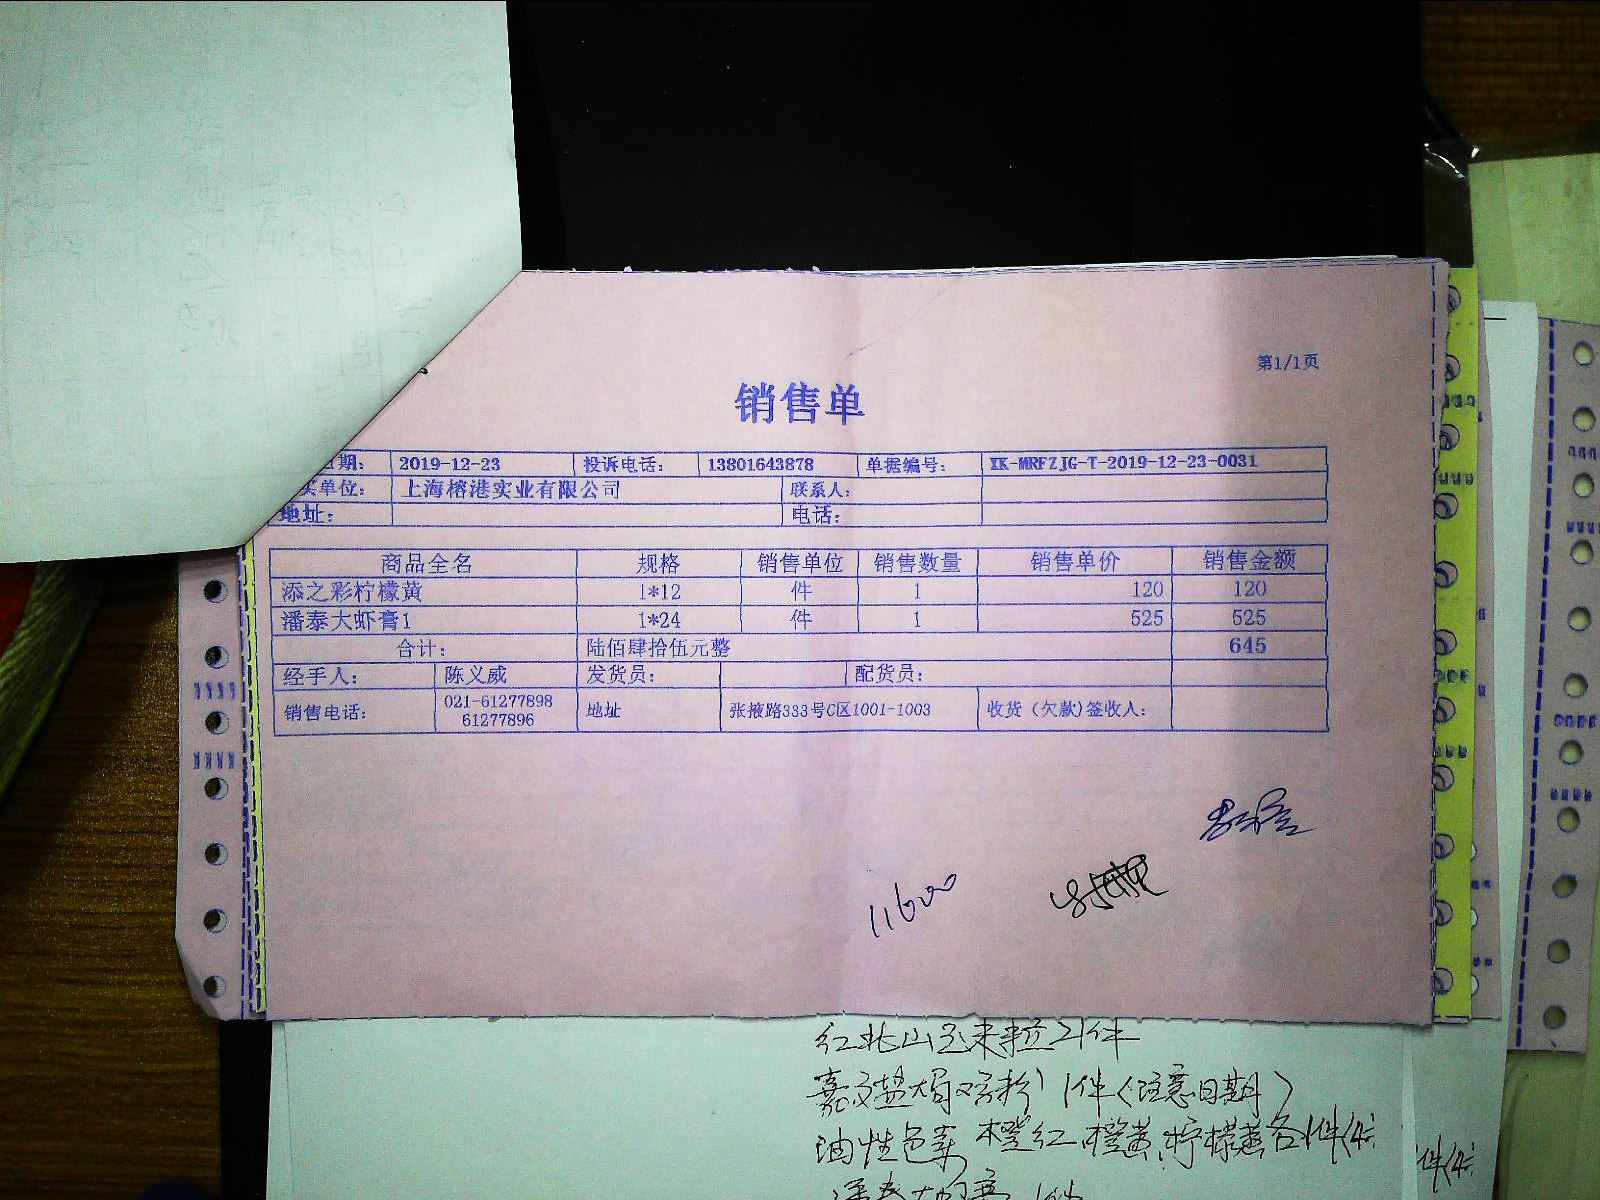 第1/1页
销售单
期: 2019-12-23 投诉电话: 13801643878 单据编号: XK-MRFZJG-T-2019-12-23-0031
买单位: 上海榕港实业有限公司 联系人:
地址: 电话:
商品全名 规格 销售单位 销售数量 销售单价 销售金额
添之彩柠檬黄 1*12 件 1 120 120
潘泰大虾膏1 1*24 件 1 525 525
合计: 陆佰肆拾伍元整 645
经手人: 陈义威 发货员: 配货员:
销售电话: 021-61277898 61277896 地址 张掖路333号C区1001-1003 收货（欠款)签收人:
11600
红北山玉米粒21件
嘉豪盐焗鸡粉 1件(注意日期)
油性色素 橙红,橙黄,柠檬黄各1件
件